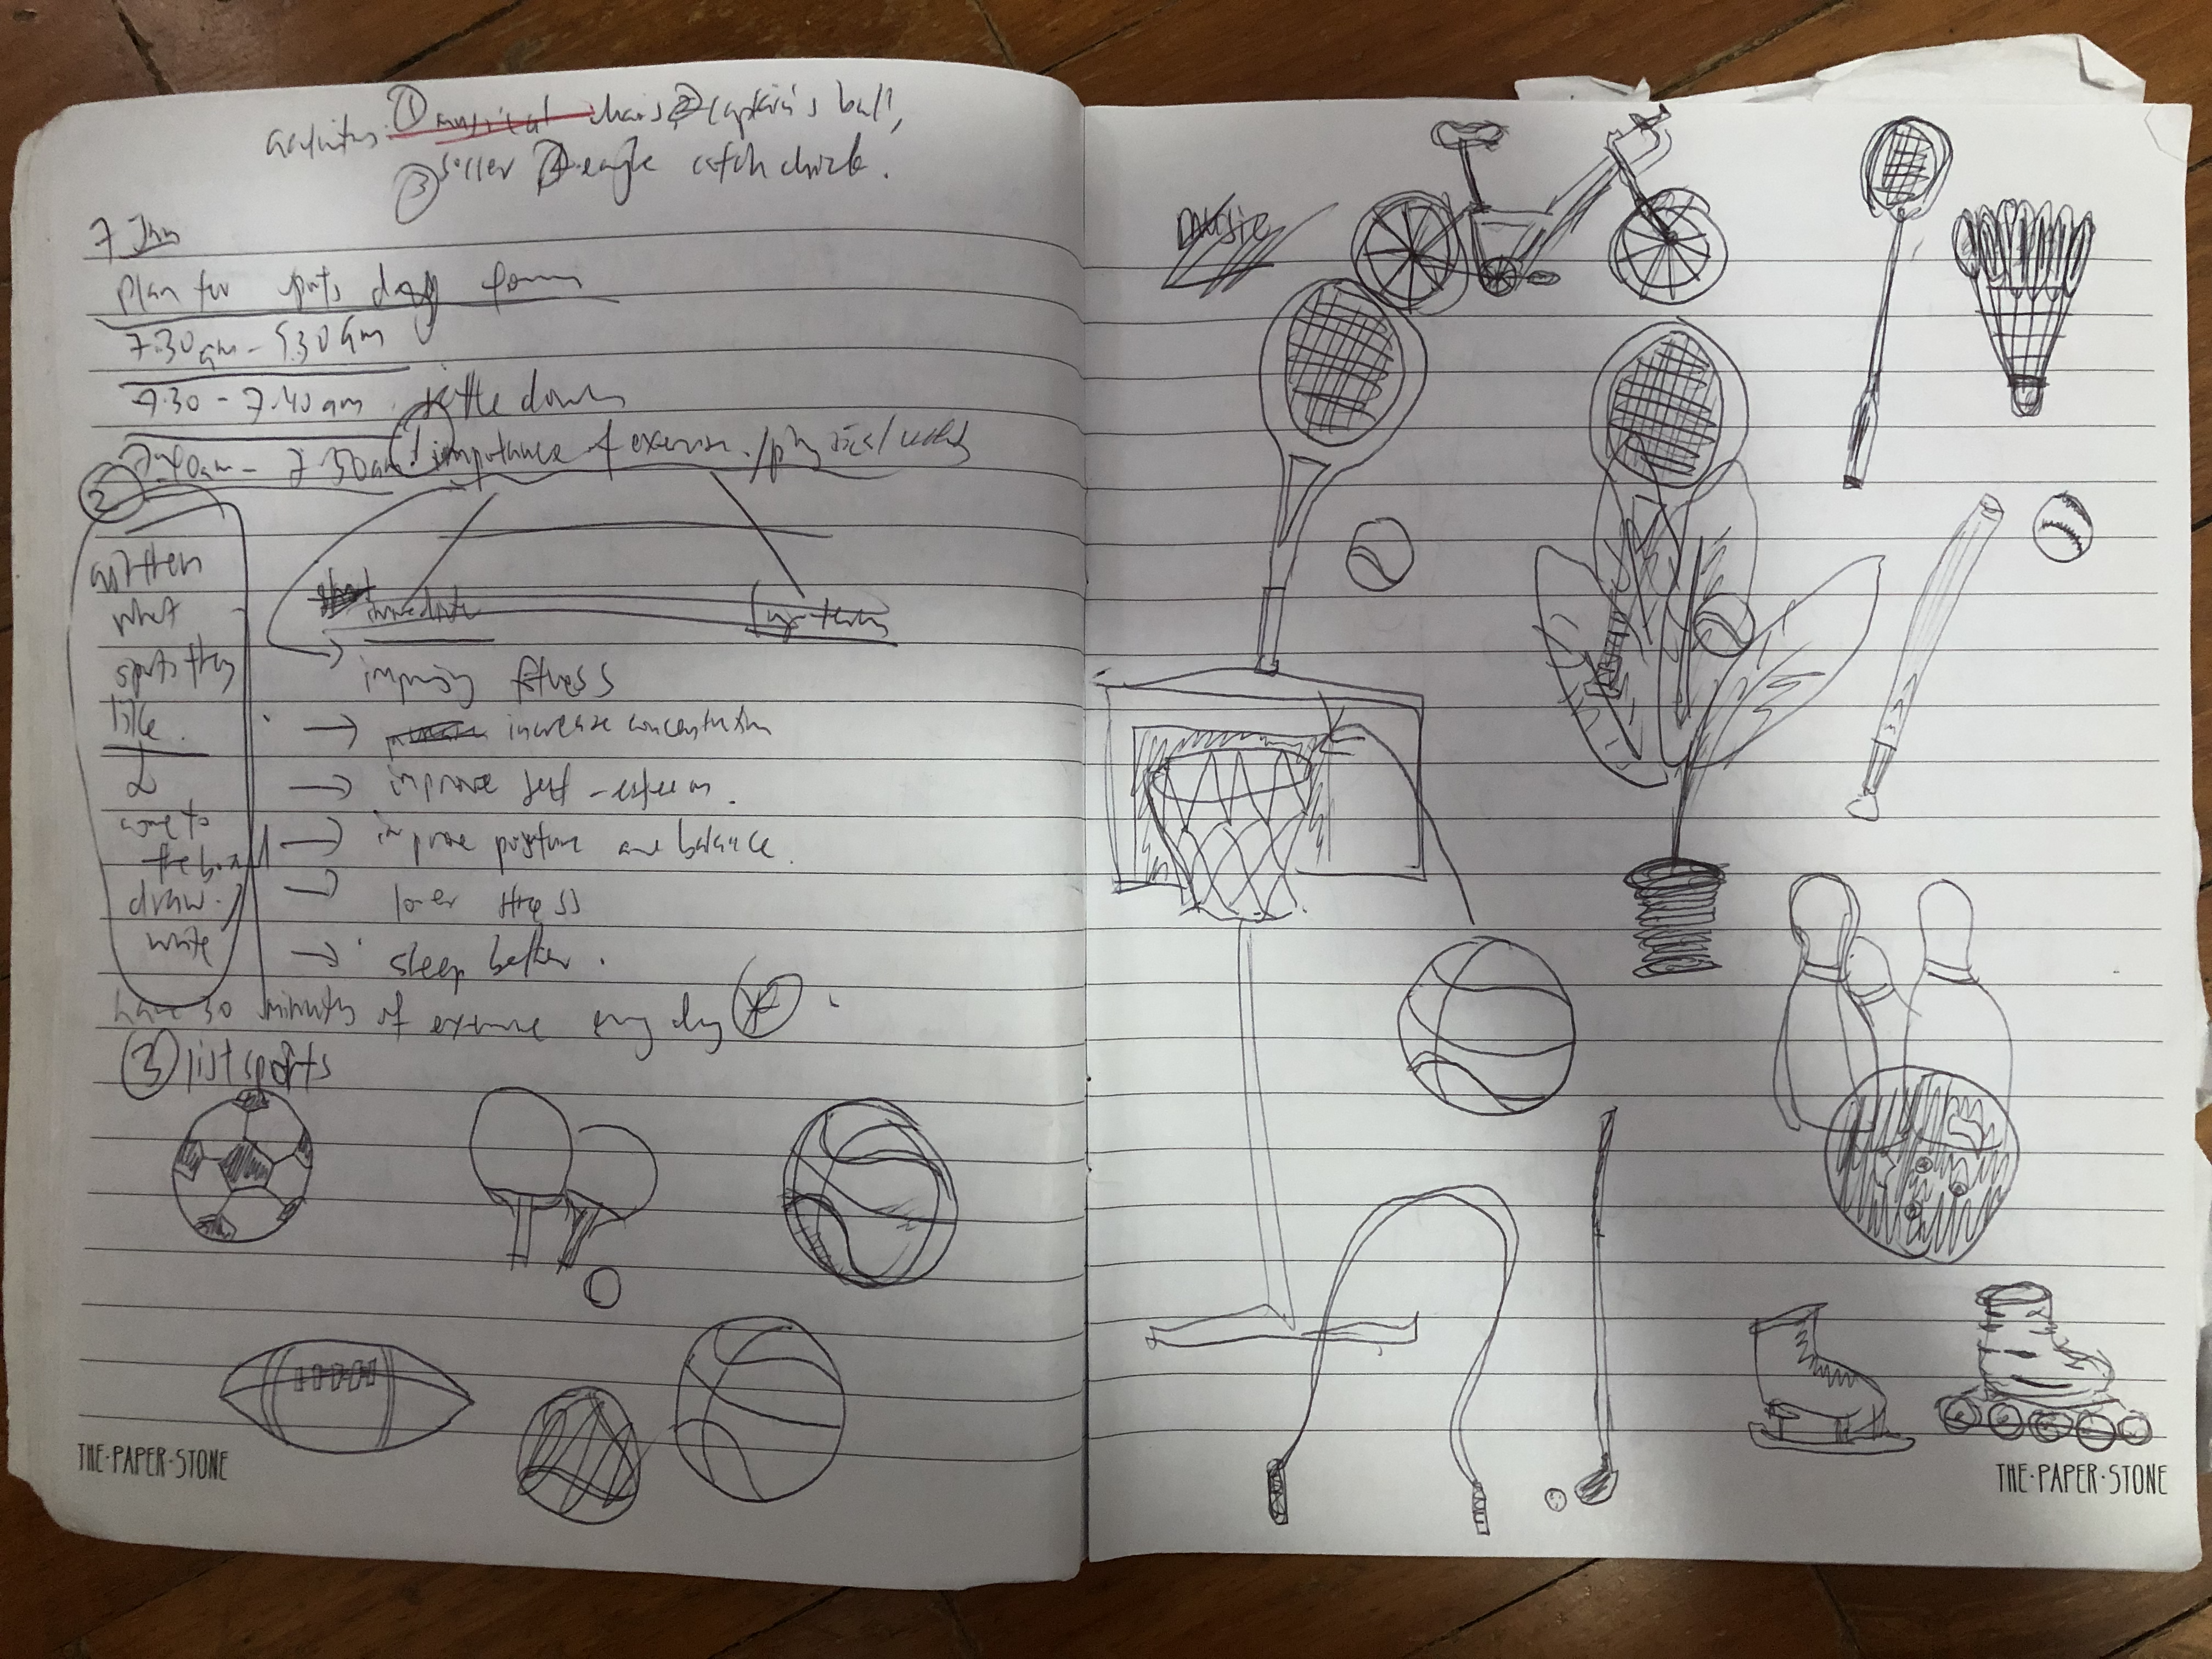 activities: ① musical chairs, ② captain's ball,
③ soccer ④ eagle catch chick.
7 Jan
Plan for sports day
7.30am - 9.30am
7.30 - 7.40am settle down
7.40am - 7.50am ① importance of exercise /
②
ask them
what
sports they
like.
&
come to
the board
draw /
write
immediate
long-term
→ improving fitness
→ increase concentration
→ improve self-esteem.
→ improve posture and balance.
→ lower stress
→ sleep better.
have 30 minutes of exercise every day
③ list sports
THE·PAPER·STONE
music
THE·PAPER·STONE